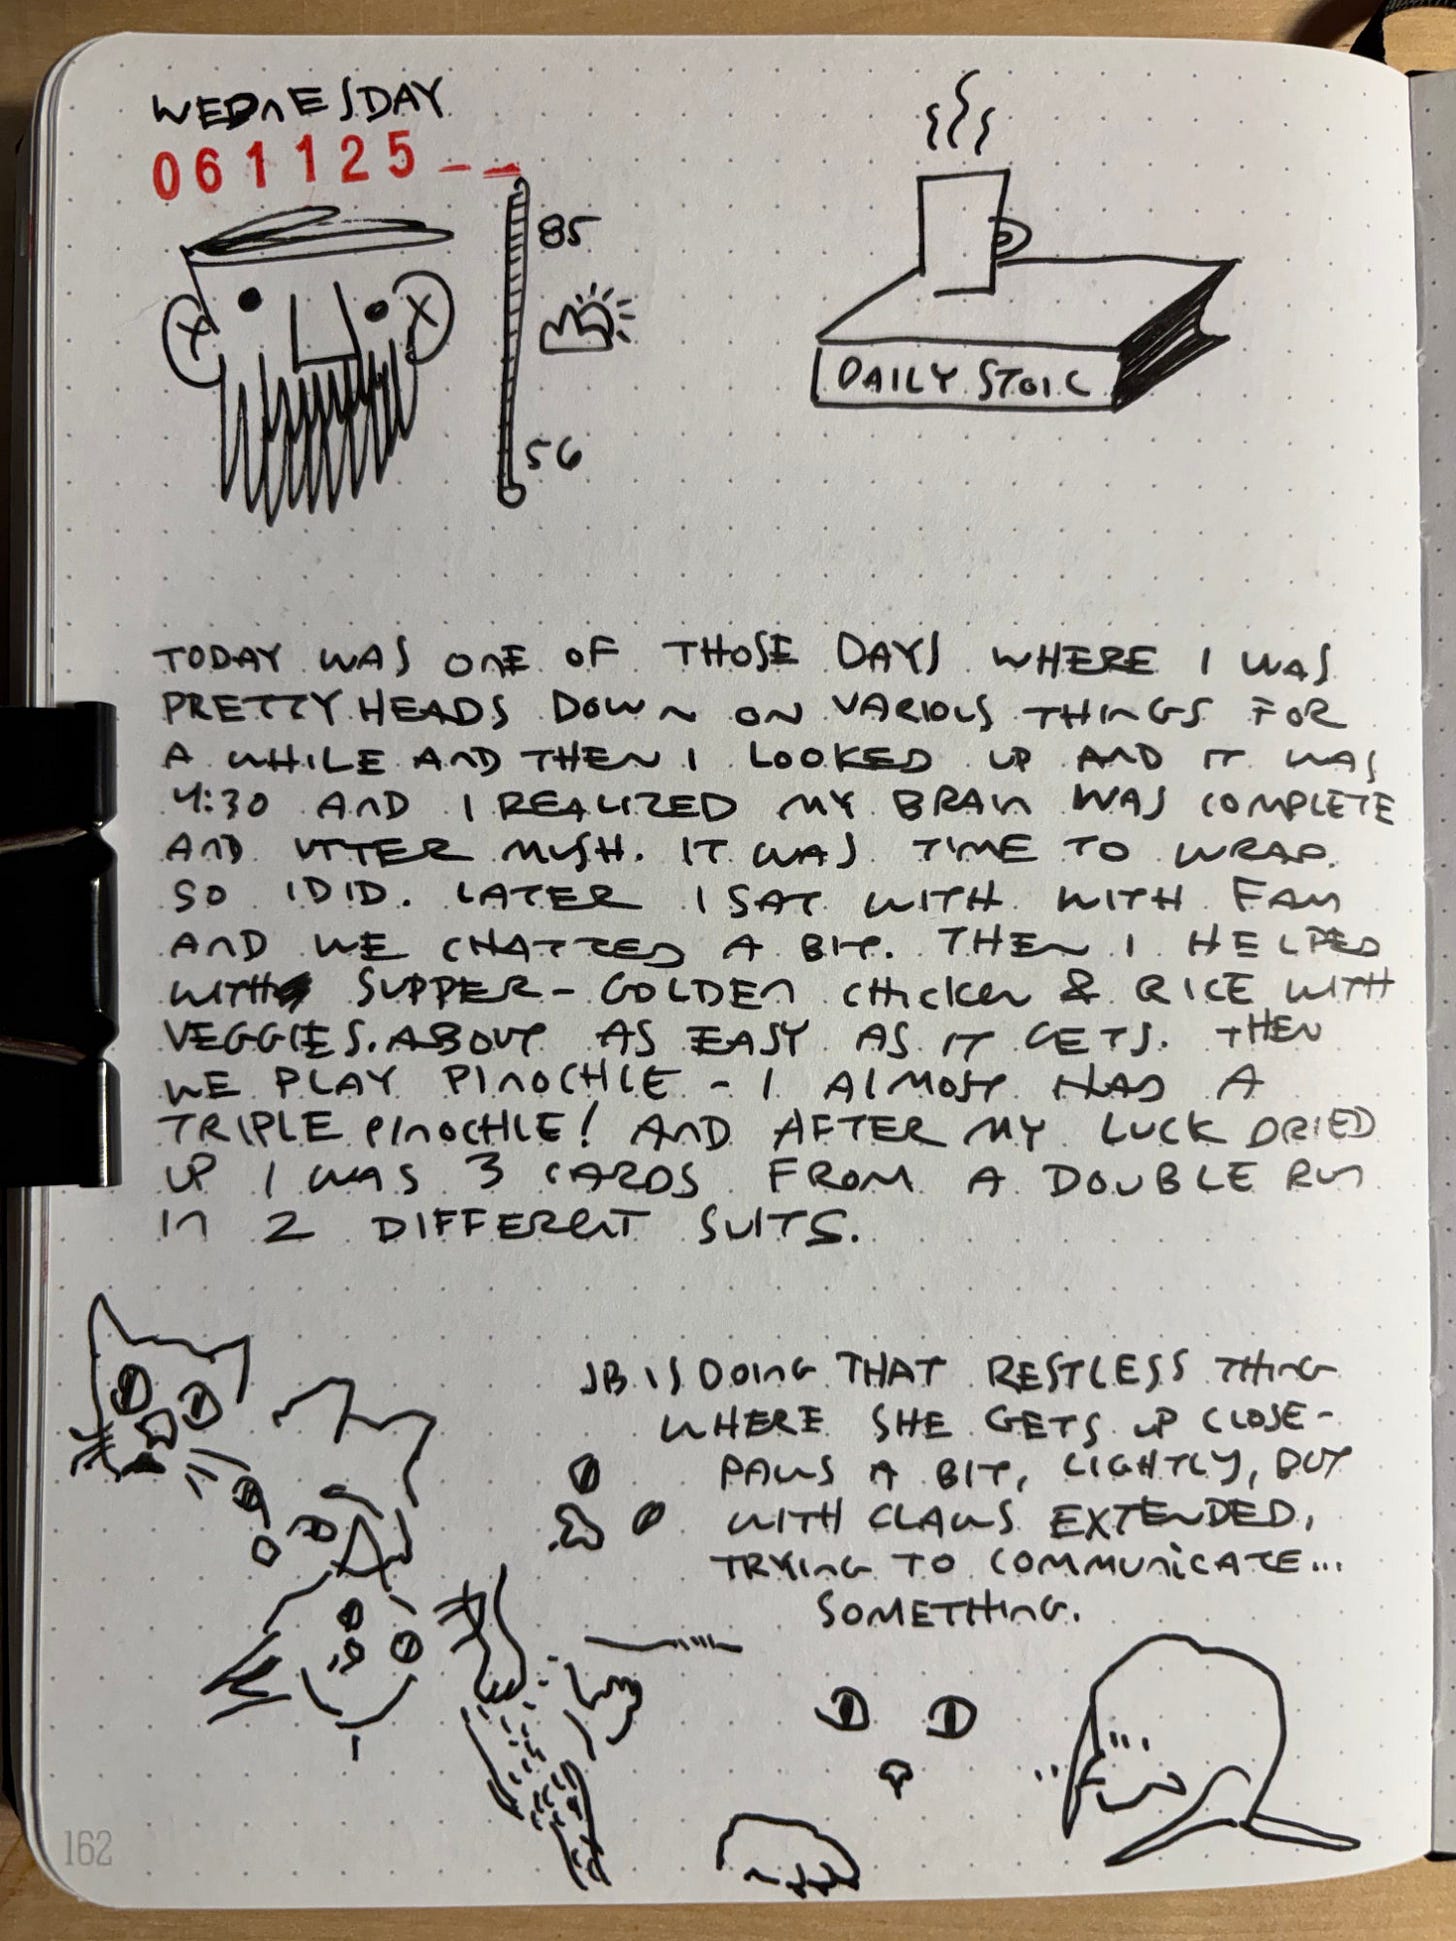 WEDNESDAY
061125--
85
56
DAILY STOIC
TODAY WAS ONE OF THOSE DAYS WHERE I WAS
PRETTY HEADS DOWN ON VARIOUS THINGS FOR
A WHILE AND THEN I LOOKED UP AND IT WAS
4:30 AND I REALIZED MY BRAIN WAS COMPLETE
AND UTTER MUSH. IT WAS TIME TO WRAP.
SO I DID. LATER I SAT WITH WITH FAM
AND WE CHATTED A BIT. THEN I HELPED
WITH SUPPER - GOLDEN CHICKEN & RICE WITH
VEGGIES. ABOUT AS EASY AS IT GETS. THEN
WE PLAY PINOCHLE - I ALMOST HAD A
TRIPLE PINOCHLE! AND AFTER MY LUCK DRIED
UP I WAS 3 CARDS FROM A DOUBLE RUN
IN 2 DIFFERENT SUITS.
JB IS DOING THAT RESTLESS THING
WHERE SHE GETS UP CLOSE-
PAWS A BIT, LIGHTLY, BUT
WITH CLAWS EXTENDED,
TRYING TO COMMUNICATE...
SOMETHING.
162